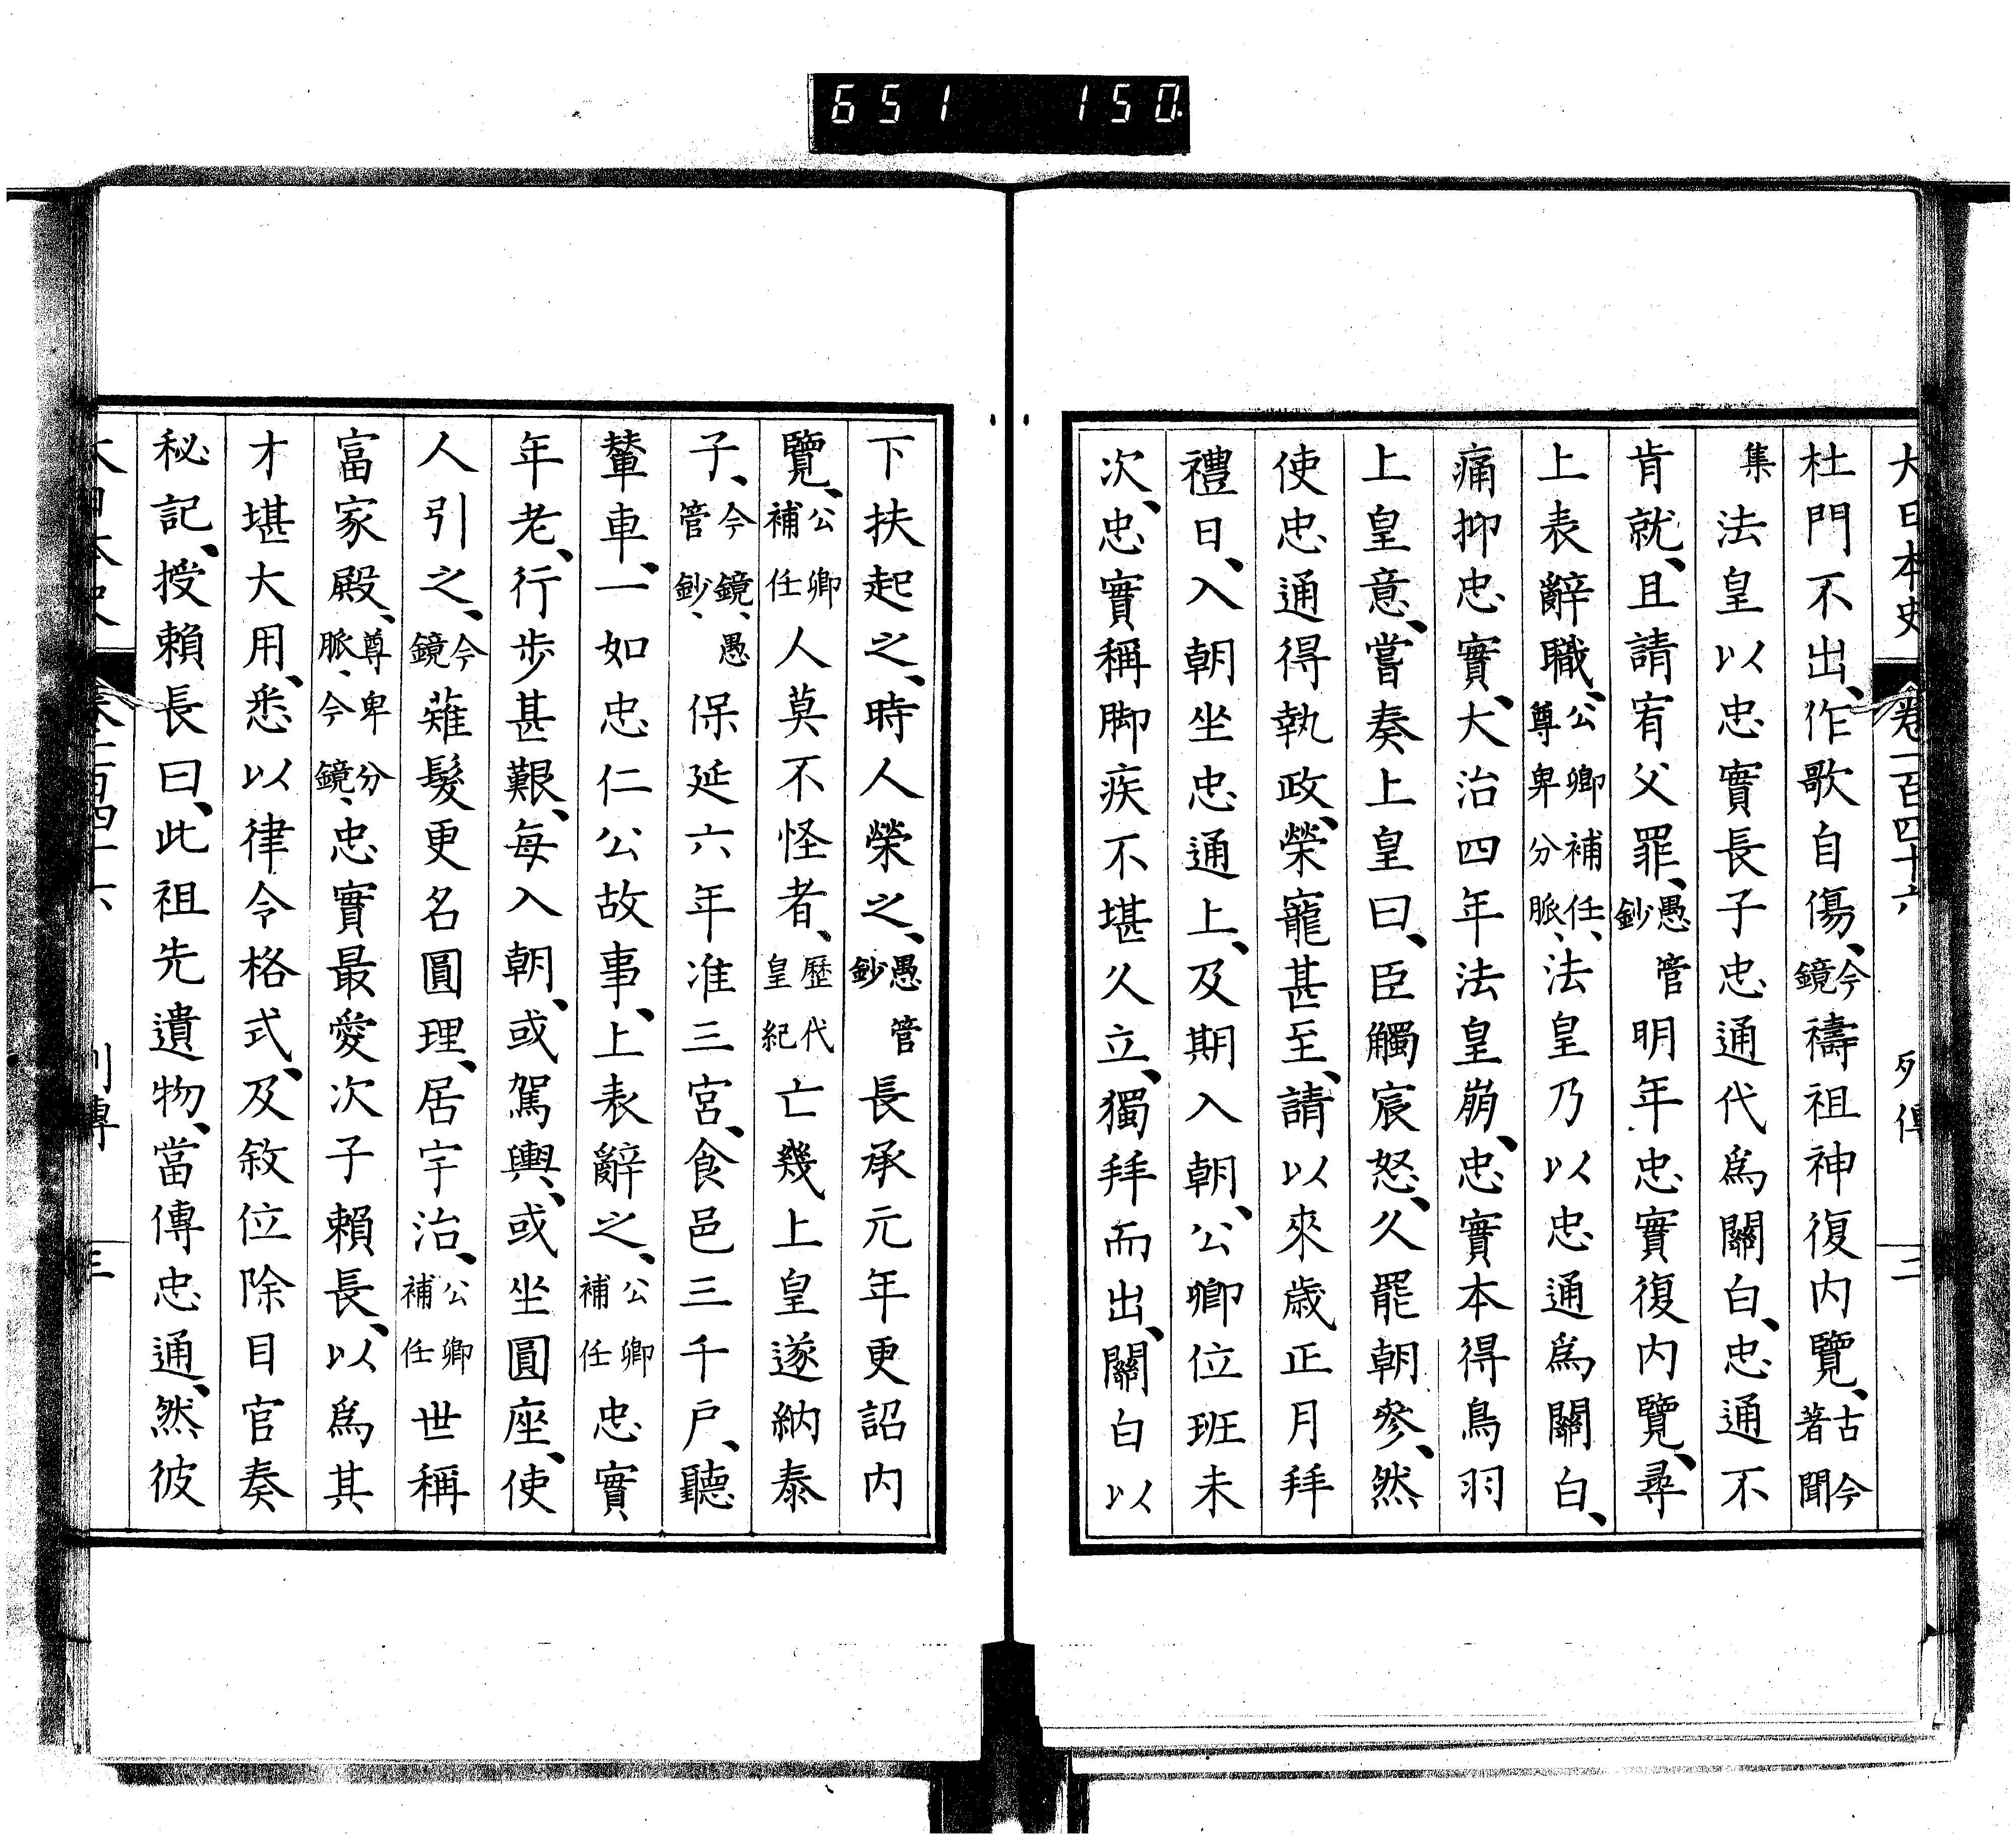 651 150
大日本史 卷一百四十六 列傳 二
杜門不出、作歌自傷、今鏡禱祖神復内覽、古今著聞
集法皇以忠實長子忠通代爲關白、忠通不
肯就、且請宥父罪、愚管鈔明年忠實復内覽、尋
上表辭職、公卿補任、尊卑分脈、法皇乃以忠通爲關白、
痛抑忠實、大治四年法皇崩、忠實本得鳥羽
上皇意、嘗奏上皇曰、臣觸宸怒、久罷朝參、然
使忠通得執政、榮寵甚至、請以來歲正月拜
禮日、入朝坐忠通上、及期入朝、公卿位班未
次、忠實稱脚疾不堪久立、獨拜而出、關白以
下扶起之、時人榮之、愚管鈔長承元年更詔内
覽、公卿補任人莫不怪者、歷代皇紀亡幾上皇遂納泰
子、今鏡、愚管鈔、保延六年准三宮、食邑三千戶、聽
輦車、一如忠仁公故事、上表辭之、公卿補任忠實
年老、行步甚艱、每入朝、或駕輿、或坐圓座、使
人引之、今鏡薙髮更名圓理、居宇治、公卿補任世稱
富家殿、尊卑分脈、今鏡、忠實最愛次子賴長、以爲其
才堪大用、悉以律令格式、及敘位除目官奏
秘記、授賴長曰、此祖先遺物、當傳忠通、然彼
大日本史 卷一百四十六 列傳 三